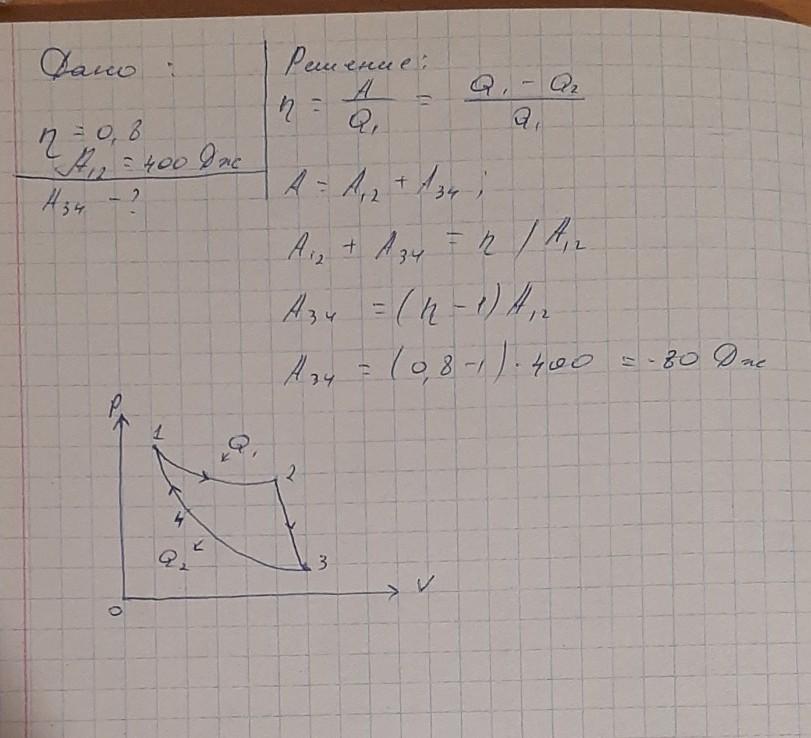 Дано :
η = 0,8
A₁₂ = 400 Дж
A₃₄ - ?
Решение:
η = A / Q₁ = (Q₁ - Q₂) / Q₁
A = A₁₂ + A₃₄ ;
A₁₂ + A₃₄ = η / A₁₂
A₃₄ = (η - 1) A₁₂
A₃₄ = (0,8 - 1) · 400 = -80 Дж
P
1
Q₁
2
4
Q₂
3
0
V